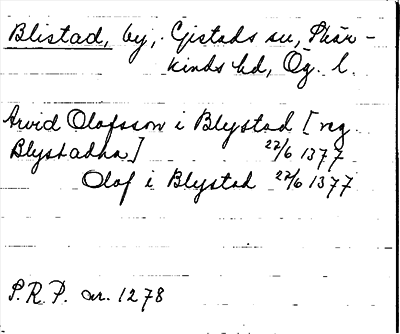 Blistad, by, Gistads sn, Skär-
kinds hd, Ög. l.
Arvid Olofsson i Blystad [reg
Blystadha] 22/6 1377
Olof i Blystad 22/6 1377
S.R.P. nr. 1278